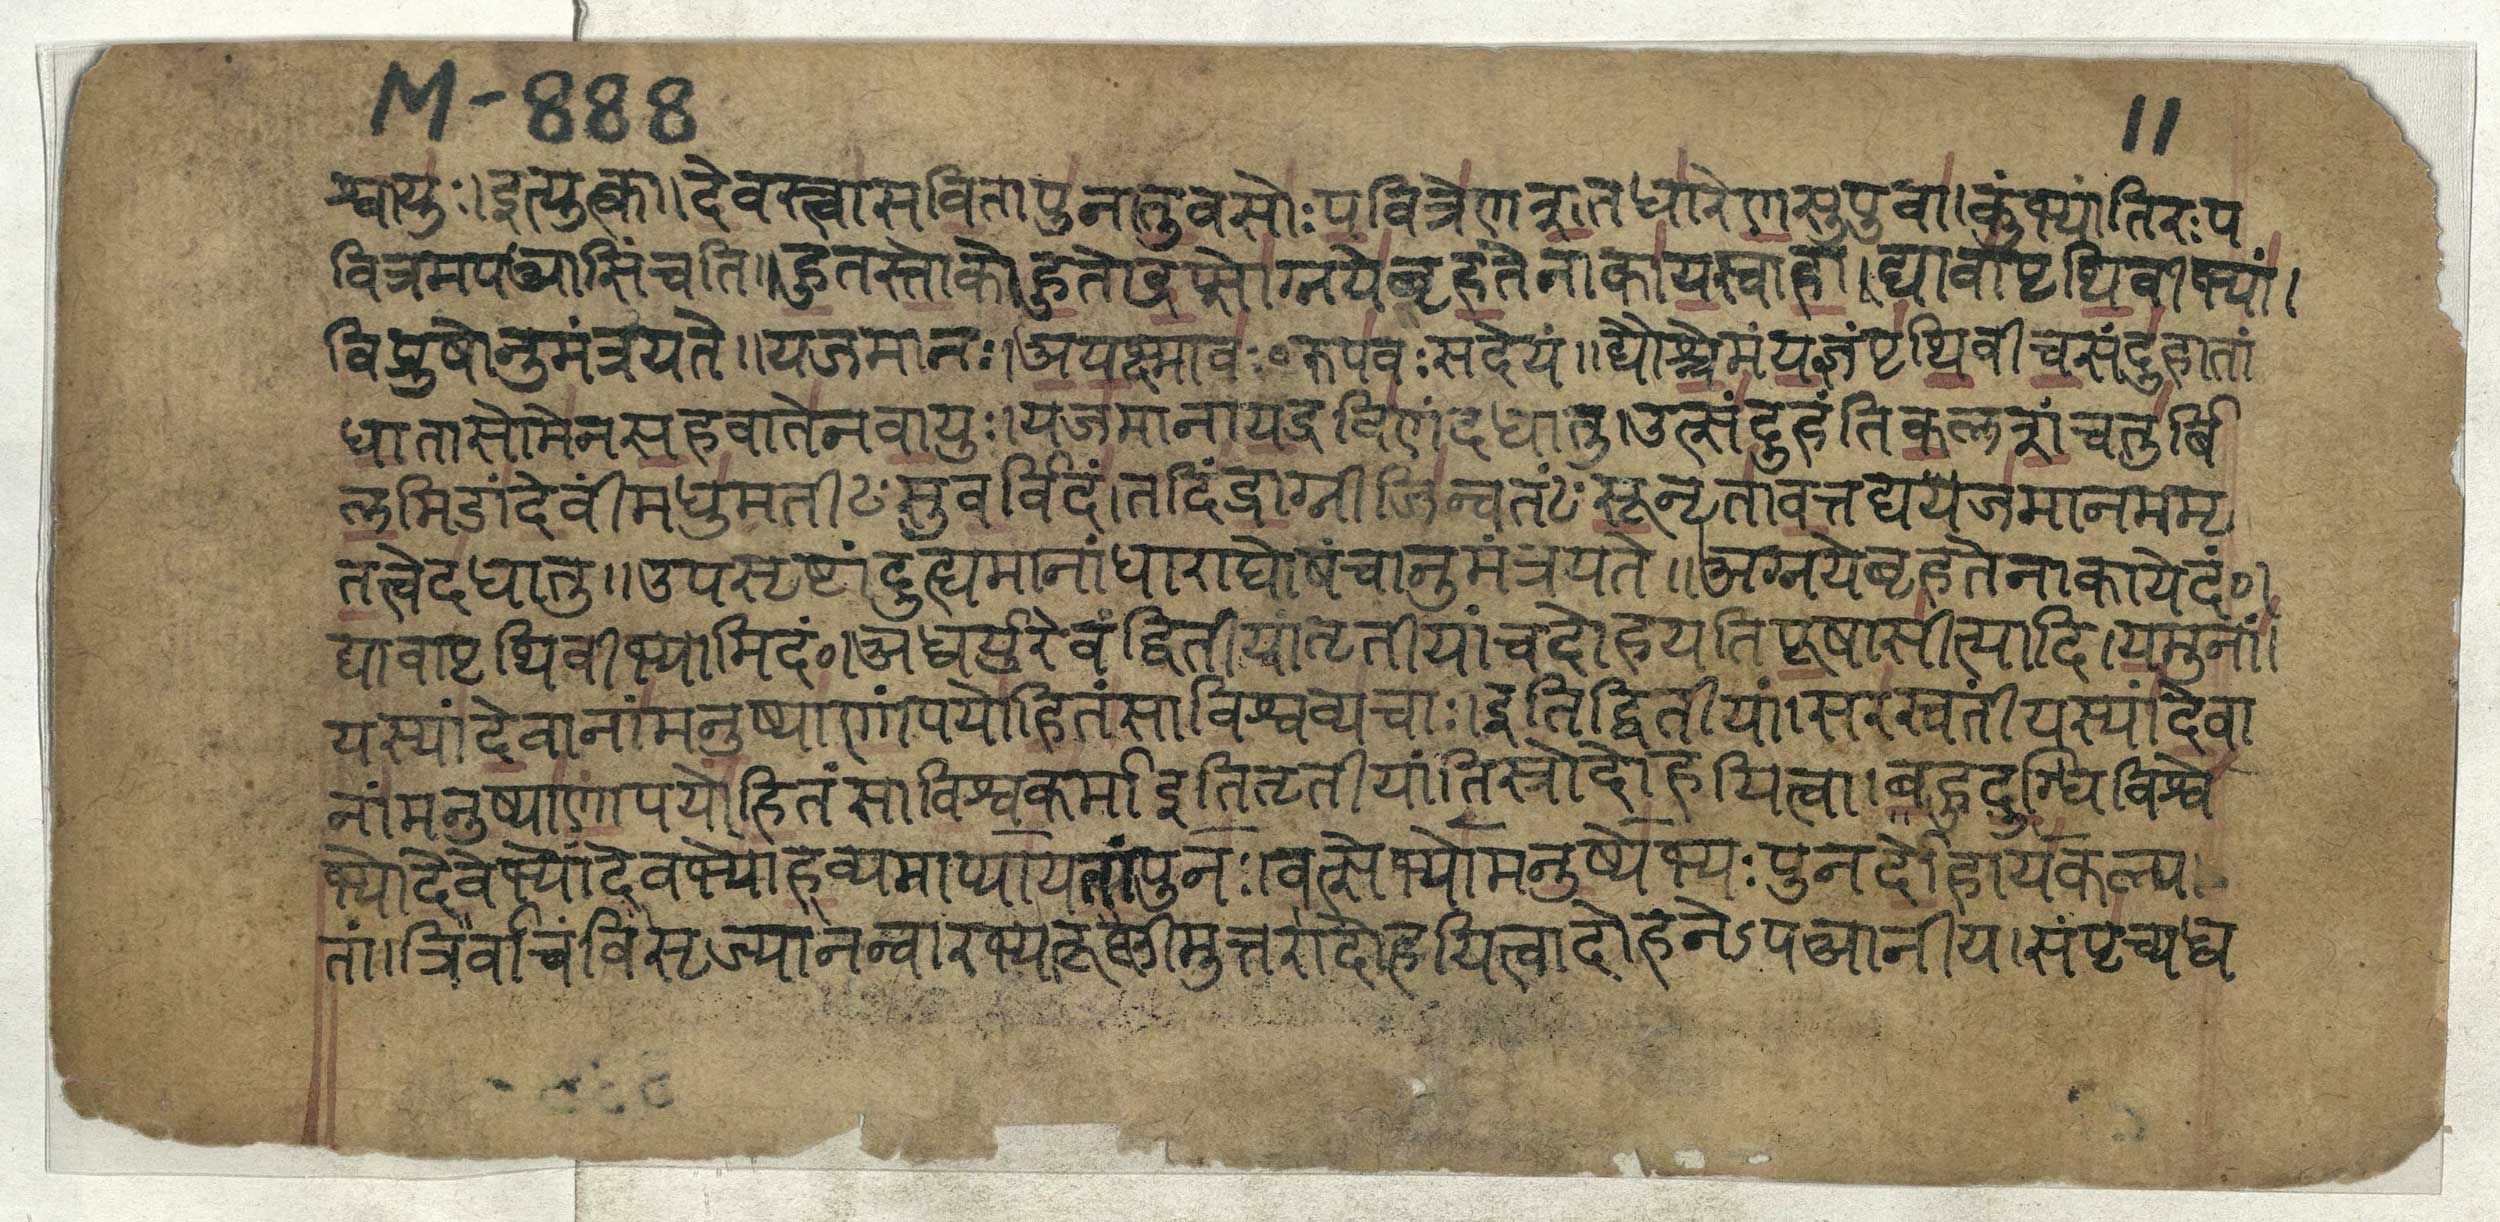 M-888
11
श्वायुः।इत्युत्का॥देवस्त्वासवितापुनातुवसोःपवित्रेणशतधारेणसुपुवा।कुंभ्यांतिरःप
वित्रमपआसिंचति॥हुतस्तोकोहुतोद्रप्सोग्नयेबृहतेनाकायस्वाहा।द्यावापृथिवीभ्यां।
विप्रुषोनुमंत्रयते॥यजमानः।अयक्ष्मावः०रूपवःसदेयं॥द्यौश्चेमंयज्ञंपृथिवीचसंदुहातां
धातासोमेनसहवातेनवायुः।यजमानायद्रविणंदधातु।उत्संदुहंतिकलशंचतुर्बि
लमिडांदेवींमधुमतीꣳसुवर्विदं।तदिंद्राग्नीजिन्वतंꣳसूनृतावत्तद्ययजमानममृ
तत्वेदधातु॥उपसृष्टांदुह्यमानांधाराघोषंचानुमंत्रयते॥अग्नयेबृहतेनाकायेदं०।
द्यावापृथिवीभ्यामिदं०।अध्वर्युरेवंद्वितीयांतृतीयांचदोहयतिपूषासीत्यादि।यमुनां।
यस्यांदेवानांमनुष्याणांपयोहितंसाविश्वव्यचाः।इतिद्वितीयां।सरस्वतींयस्यांदेवा
नांमनुष्याणांपयोहितंसाविश्वकर्माइतितृतीयांतिस्त्रोदोहयित्वा।बहुदुग्धिविश्वे
भ्योदेवेभ्योदेवभ्योहव्यमाप्यायतांपुनः।वत्सेभ्योमनुष्येभ्यःपुनर्दोहायकल्प
तां॥त्रिर्वाचंविसृज्यानन्वारभ्यतूष्णीमुत्तरादोहयित्वादोहनेऽपआनीय।संपृच्यध्व